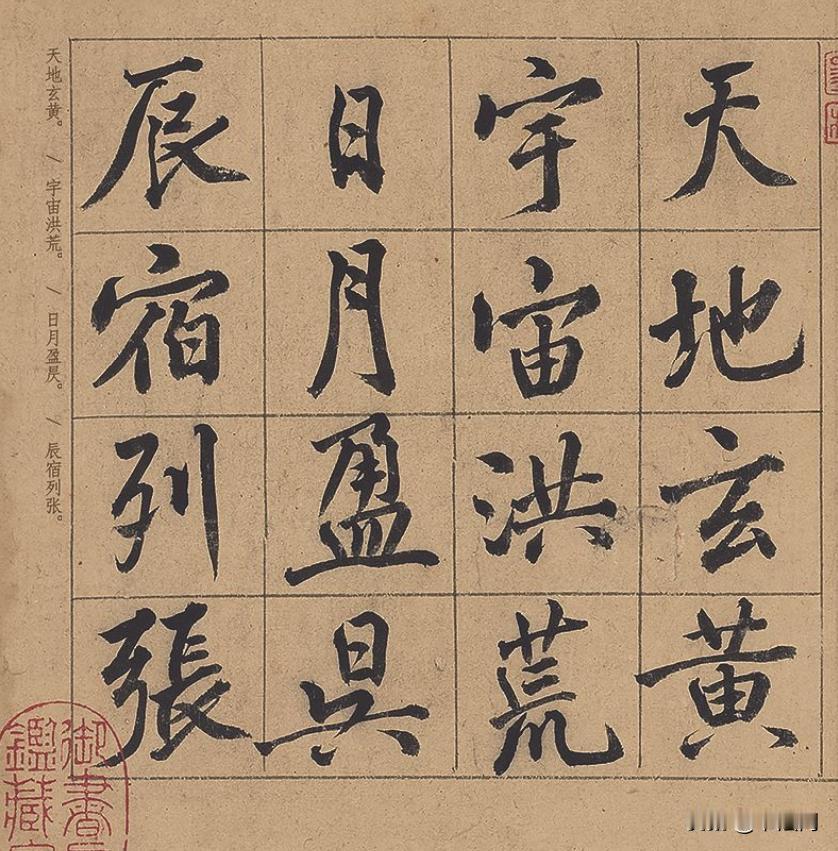 天地玄黄
宇宙洪荒
日月盈昃
辰宿列張
天地玄黄。/宇宙洪荒。/日月盈昃。/辰宿列张。
御書
鑑藏